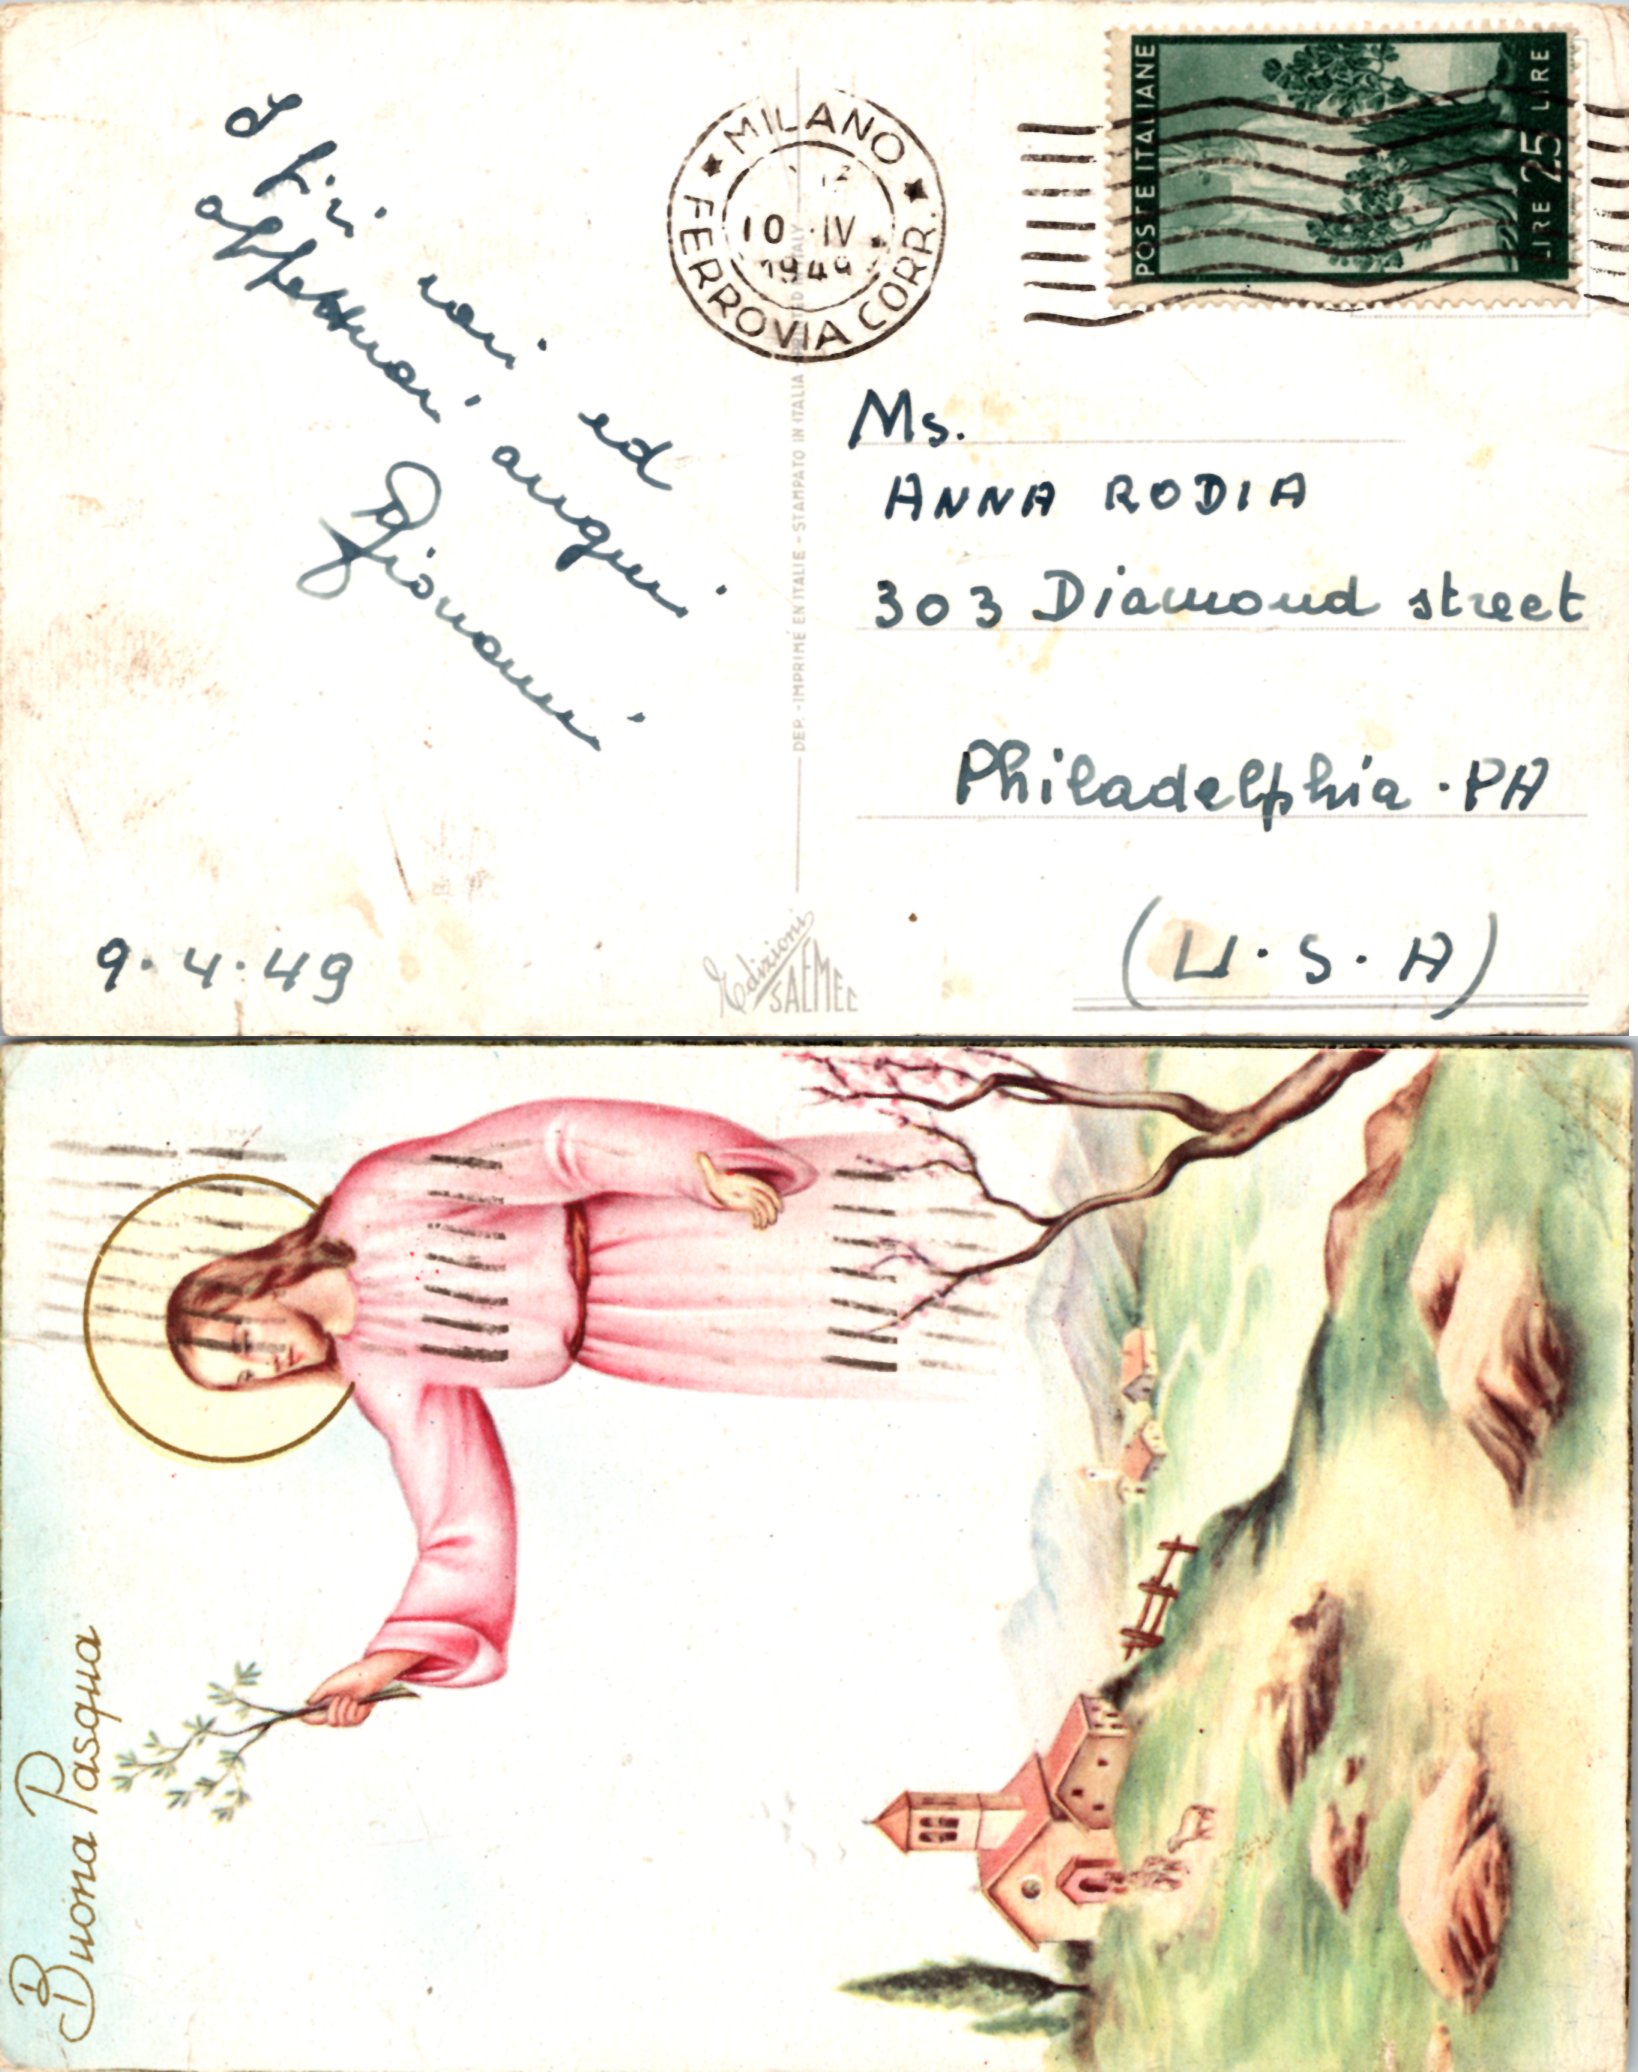 I più cari ed
affettuosi auguri
Giovanni
9.4.49
MILANO
FERROVIA CORR.
10 IV
1949
POSTE ITALIANE
LIRE 25 LIRE
Ms.
ANNA RODIA
303 Diamond street
Philadelphia . PA
(U.S.A)
DEP. - IMPRIMÉ EN ITALIE - STAMPATO IN ITALIA - PRINTED IN ITALY
Edizioni
SAEMEC
Buona Pasqua